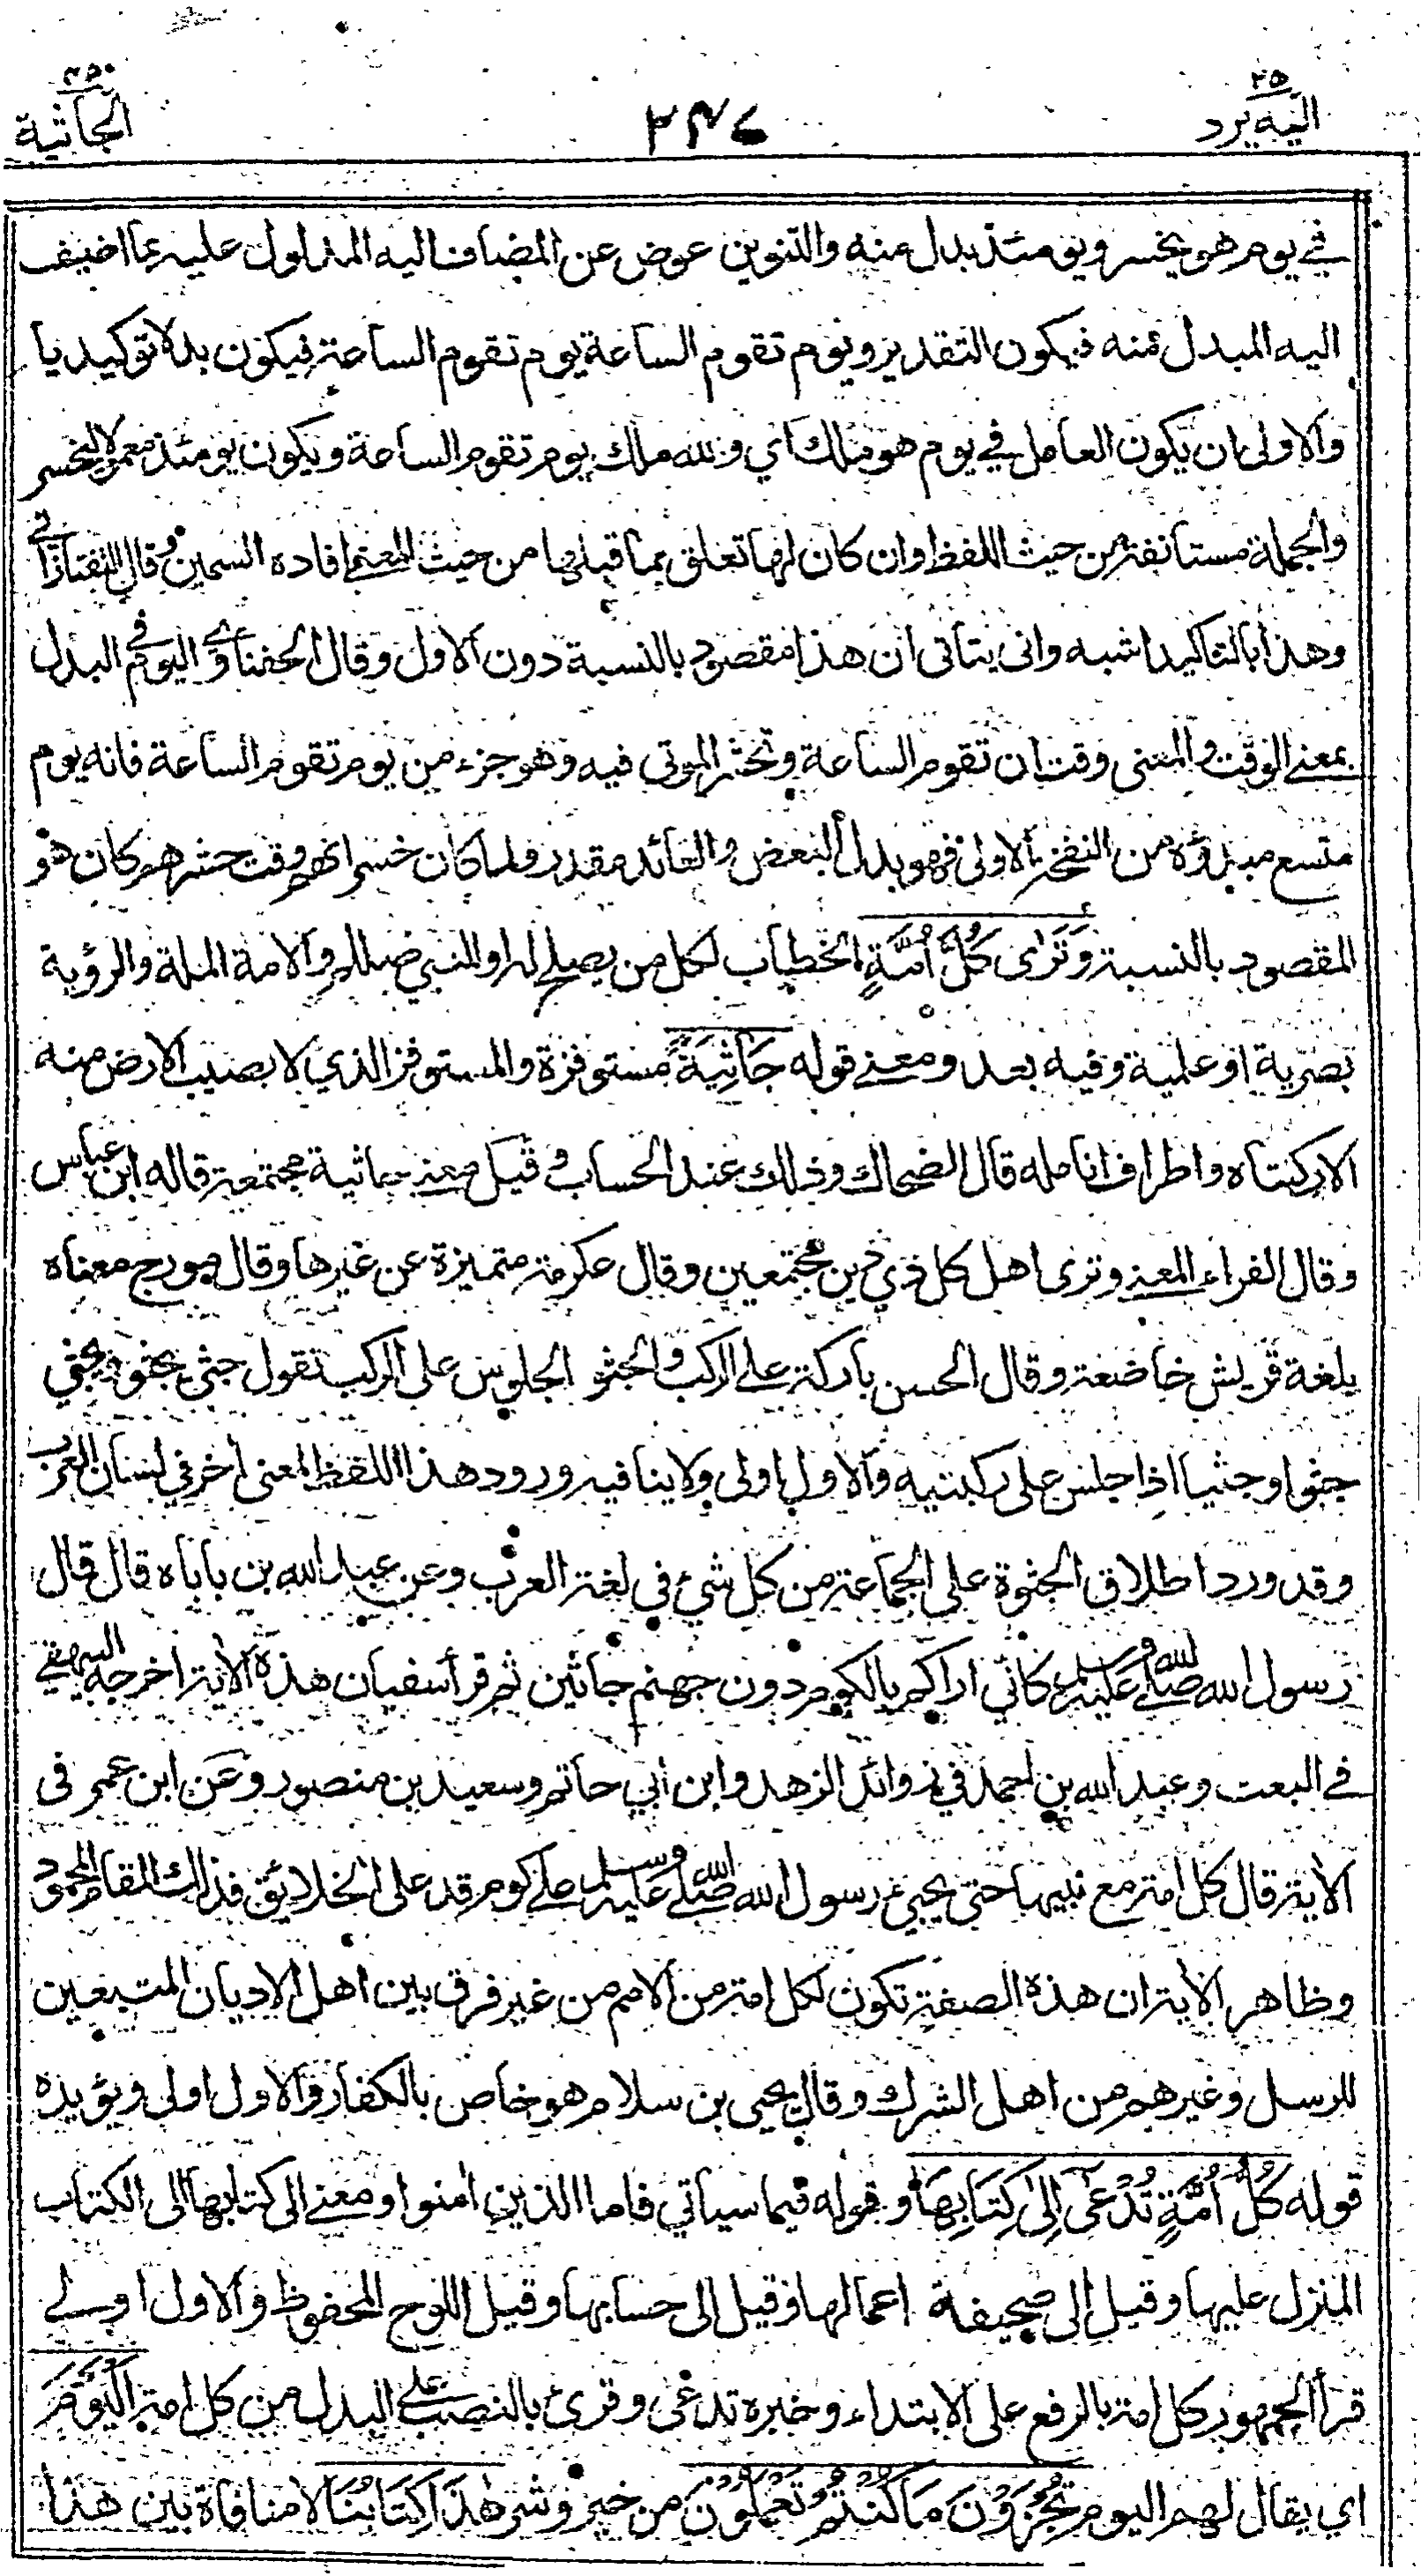 اليه يرد ٢٥
٣٤٧
الجاثية ٤٥
في يوم هو يخسر ويومئذ بدل منه والتنوين عوض عن المضاف اليه المدلول عليه بما اضيف
اليه المبدل منه فيكون التقدير ويوم تقوم الساعة يوم تقوم الساعة فيكون بدلا توكيديا
والاولى ان يكون العامل في يوم هو ملك اي ولله ملك يوم تقوم الساعة ويكون يومئذ معمولا ليخسر
والجملة مستانفة من حيث اللفظ وان كان لها تعلق بما قبلها من حيث المعنى افاده السمين وقال التفتازاني
وهذا بالتاكيد اشبه وانى يتاتى ان هذا مقصود بالنسبة دون الاول وقال الحفناوي اليوم في البدل
بمعنى الوقت والمعنى وقت ان تقوم الساعة وتحشر الموتى فيه وهو جزء من يوم تقوم الساعة فانه يوم
متسع مبدؤه من النفخة الاولى فهو بدل البعض والعائد مقدر ولما كان خسرانهم وقت حشرهم كان هو
المقصود بالنسبة وَتَرٰى كُلَّ اُمَّةٍ الخطاب لكل من يصلح له او للنبي صلله والامة الملة والرؤية
بصرية او علمية وفيه بعد ومعنى قوله جَاثِيَةً مستوفزة والمستوفز الذي لا يصيب الارض منه
الا ركبتاه واطراف انامله قال الضحاك وذلك عند الحساب وقيل معنى جاثية مجتمعة قاله ابن عباس
وقال الفراء المعنى وترى اهل كل ذي دين مجتمعين وقال عكرمة متميزة عن غيرها وقال مورج معناه
بلغة قريش خاضعة وقال الحسن باركة على الركب والجثو الجلوس على الركب تقول جثى يجثو ويجثي
جثوا وجثيا اذا جلس على ركبتيه والاول اولى ولا ينافيه ورود هذا اللفظ لمعنى اخر في لسان العرب
وقد ورد اطلاق الجثوة على الجماعة من كل شيء في لغة العرب وعن عبد الله بن باباه قال قال
رسول الله صلى الله عليه وسلم كاني اراكم بالكوم دون جهنم جاثين ثم قرأ سفيان هذه الاية اخرجه البيهقي
في البعث وعبد الله بن احمد في زوائد الزهد وابن ابي حاتم وسعيد بن منصور وعن ابن عمر في
الاية قال كل امة مع نبيها حتى يجيء رسول الله صلى الله عليه وسلم على كوم قد على الخلائق فذلك المقام المحمود
وظاهر الاية ان هذه الصفة تكون لكل امة من الامم من غير فرق بين اهل الاديان المتبعين
للرسل وغيرهم من اهل الشرك وقال يحيى بن سلام هو خاص بالكفار والاول اولى ويؤيده
قوله كُلُّ اُمَّةٍ تُدْعٰى اِلٰى كِتَابِهَا وقوله فيما سياتي فاما الذين امنوا ومعنى الى كتابها الى الكتاب
المنزل عليها وقيل الى صحيفة اعمالها وقيل الى حسابها وقيل اللوح المحفوظ والاول اولى
قرأ الجمهور كل امة بالرفع على الابتداء وخبره تدعى وقرئ بالنصب على البدل من كل امة اَلْيَوْمَ
اي يقال لهم اليوم تُجْزَوْنَ مَا كُنْتُمْ تَعْمَلُوْنَ من خير وشر هٰذَا كِتَابُنَا لا منافاة بين هذا